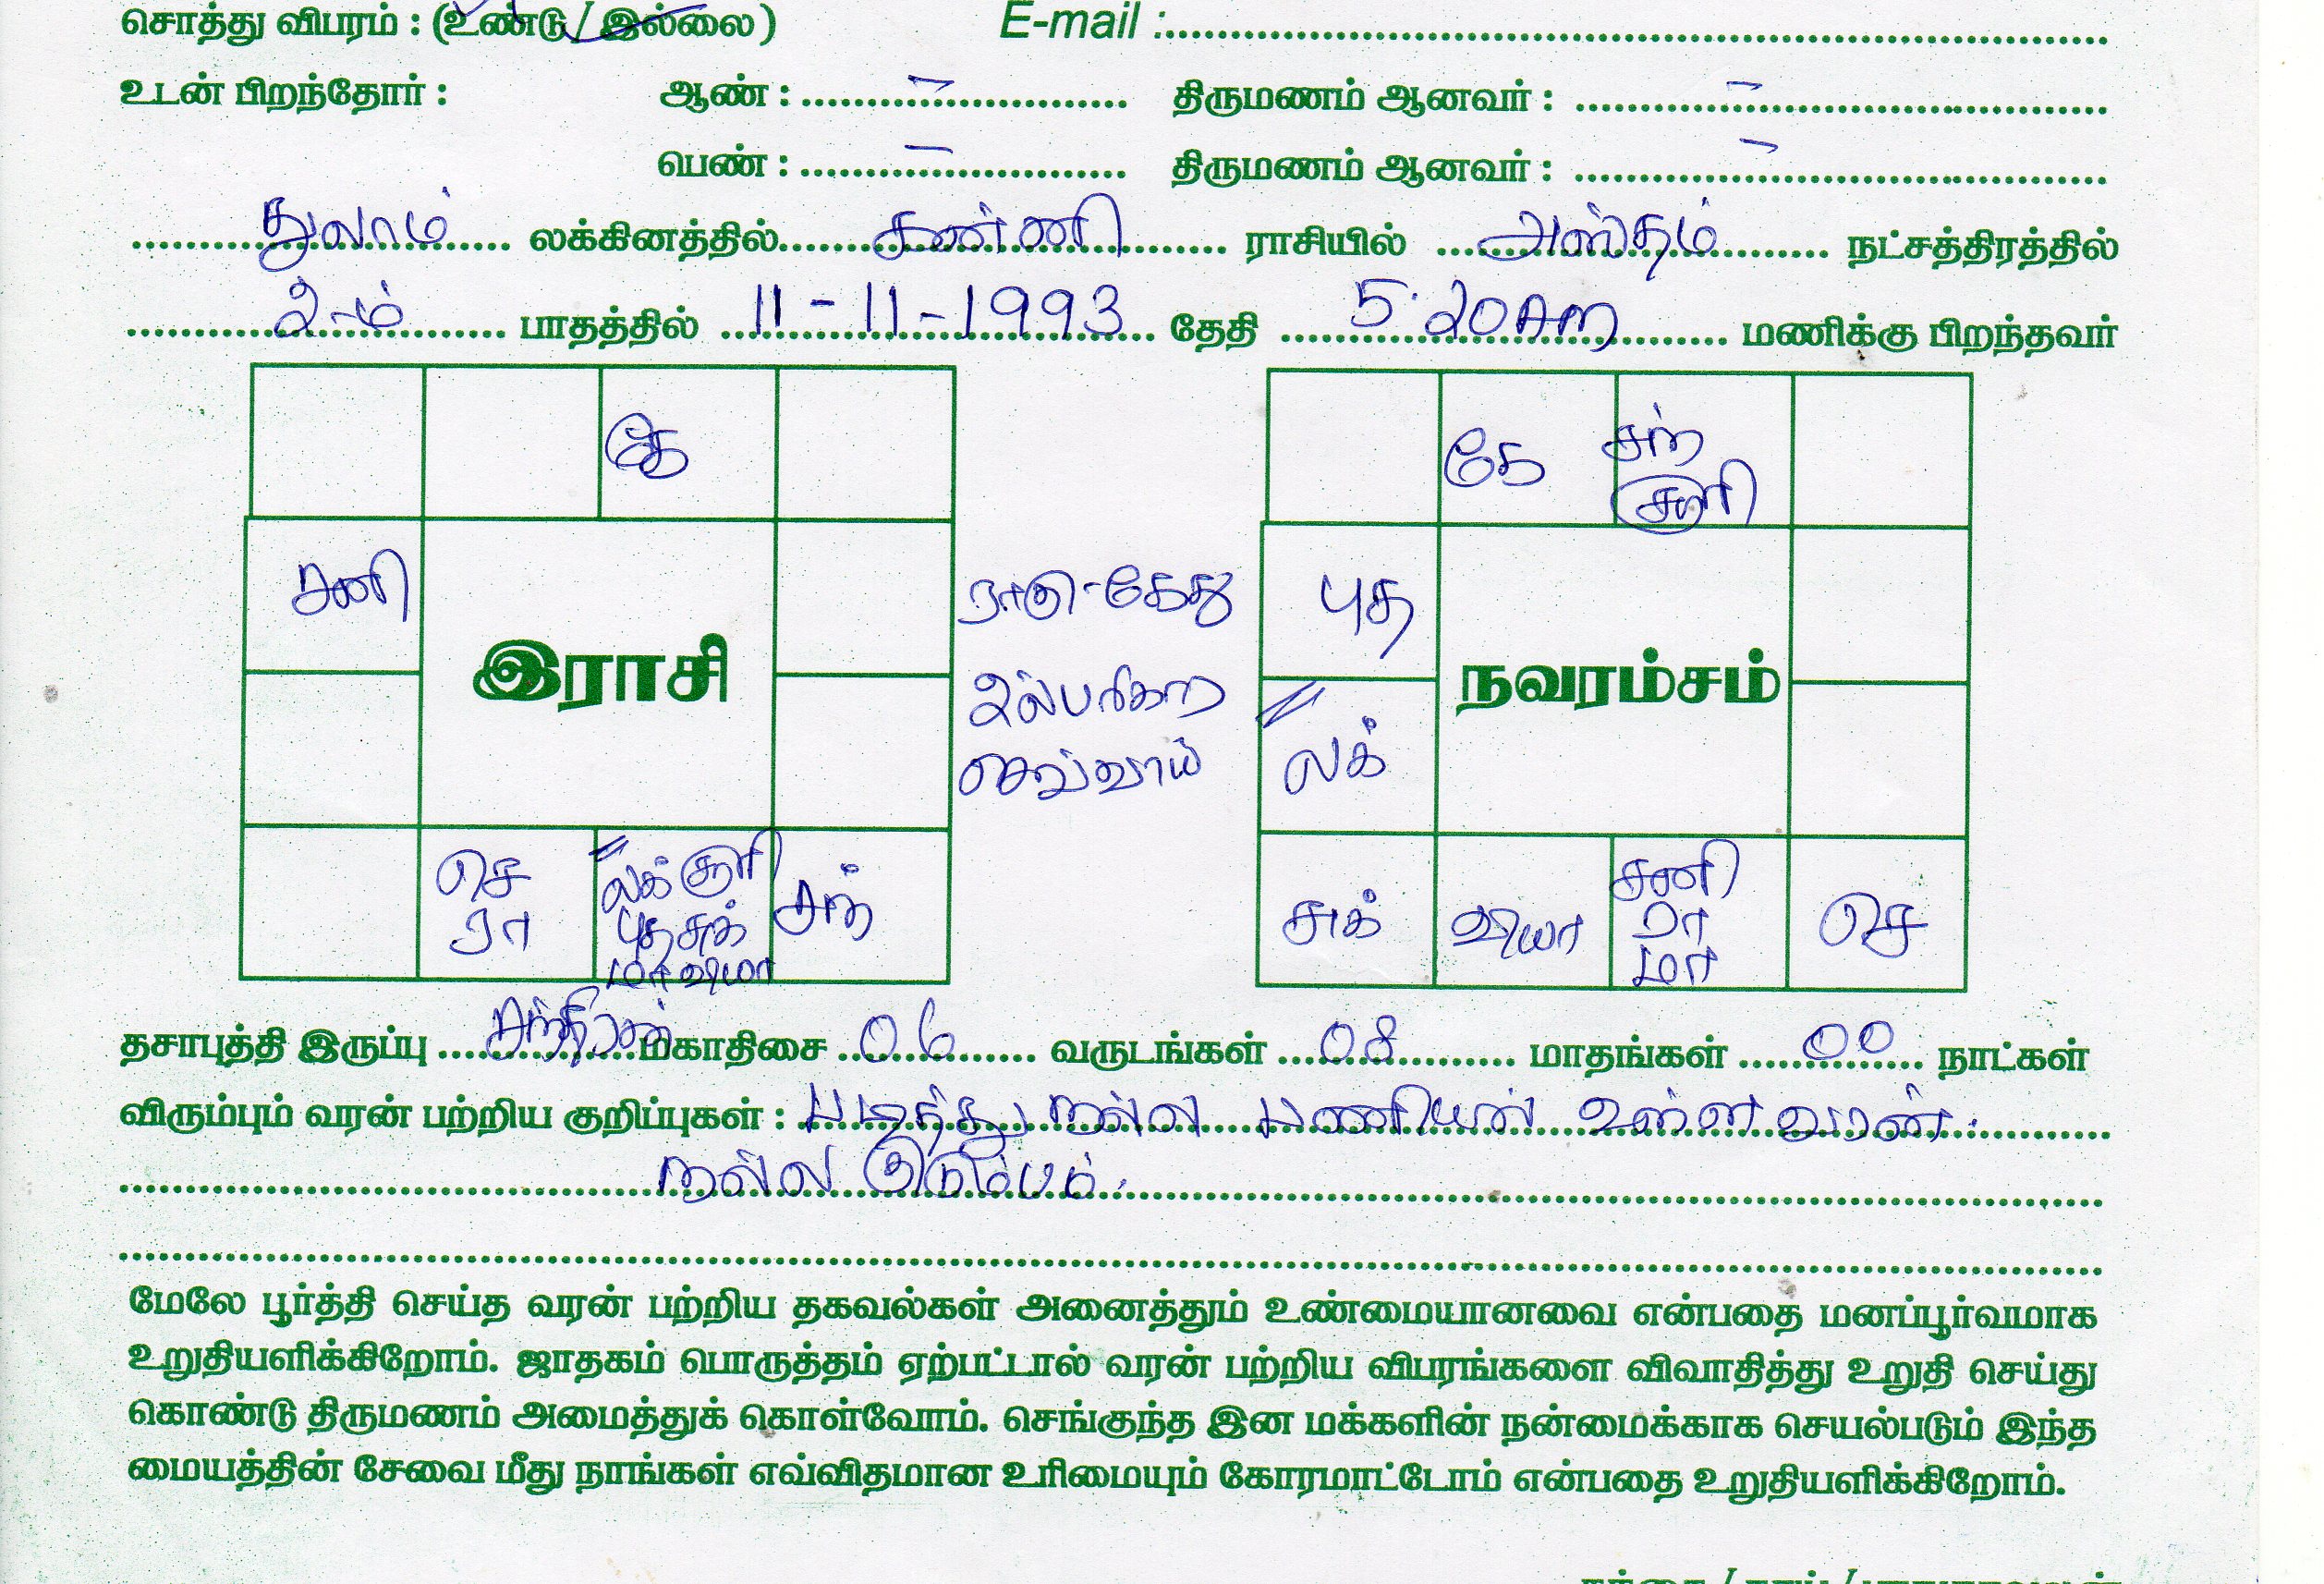 சொத்து விபரம் : (உண்டு / இல்லை) E-mail :
உடன் பிறந்தோர் : ஆண் : – திருமணம் ஆனவர் : –
பெண் : – திருமணம் ஆனவர் : –
துலாம் லக்கினத்தில் கன்னி ராசியில் அஸ்தம் நட்சத்திரத்தில்
2-ம் பாதத்தில் 11-11-1993 தேதி 5.20 Am மணிக்கு பிறந்தவர்
கே
கே சந்
சூரி
சனி
ராகு-கேது
புத
இராசி
நவரம்சம்
செவ்வாய்
லக்
செ
ரா
லக் சூரி
புத சுக்
மா வியா
சந்
சுக்
வியா
சனி
ரா
மா
செ
தசாபுத்தி இருப்பு சந்திரன் மகாதிசை 06 வருடங்கள் 08 மாதங்கள் 00 நாட்கள்
விரும்பும் வரன் பற்றிய குறிப்புகள் : படித்து நல்ல பணியில் உள்ள வரன்.
நல்ல குடும்பம்.
மேலே பூர்த்தி செய்த வரன் பற்றிய தகவல்கள் அனைத்தும் உண்மையானவை என்பதை மனப்பூர்வமாக
உறுதியளிக்கிறோம். ஜாதகம் பொருத்தம் ஏற்பட்டால் வரன் பற்றிய விபரங்களை விவாதித்து உறுதி செய்து
கொண்டு திருமணம் அமைத்துக் கொள்வோம். செங்குந்த இன மக்களின் நன்மைக்காக செயல்படும் இந்த
மையத்தின் சேவை மீது நாங்கள் எவ்விதமான உரிமையும் கோரமாட்டோம் என்பதை உறுதியளிக்கிறோம்.